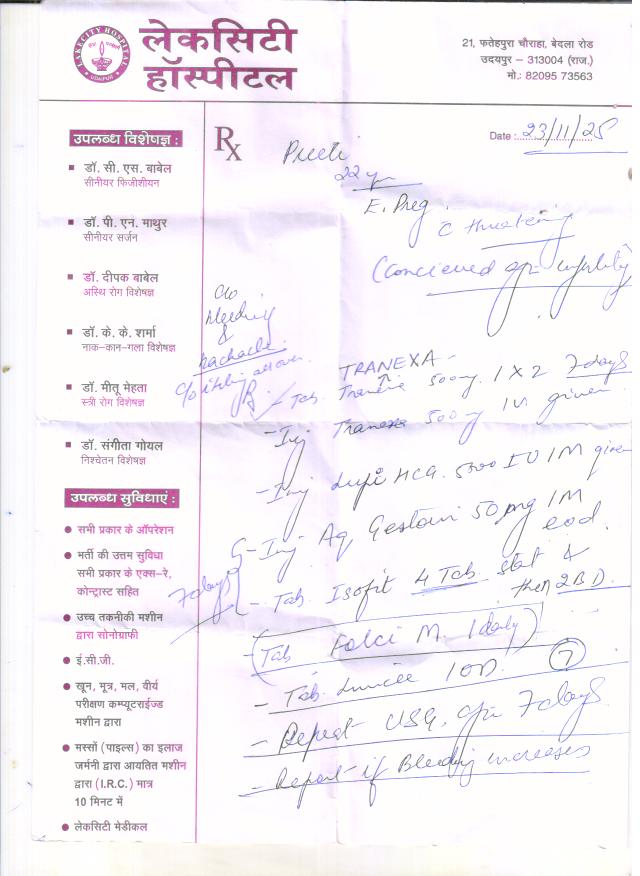 लेकसिटी
हॉस्पीटल
LAKECITY HOSPITAL
UDAIPUR
21, फतेहपुरा चौराहा, बेदला रोड
उदयपुर – 313004 (राज.)
मो.: 82095 73563
Date : 23/11/25
Rx
22 yr
E. Preg
C threatening
(Concieved after infertility
c/o
bleeding
&
backache
c/o itching all over
TRANEXA -
Tab. 500mg. 1 X 2 7 days
- Inj Tranexa 500mg IV. given
- Inj Lupi HCG. 5000 IU IM given
- Inj Aq Gestain 50mg IM
eod.
7 days
- Tab. Isofit 4 Tab. stat &
then 2 BD.
(Tab Folci M. 1 daily)
- Tab. 1 OD. 7
- Repeat USG. after 7 days
- Report if Bleeding increases
उपलब्ध विशेषज्ञ :
डॉ. सी. एस. बाबेल
सीनीयर फिजीशीयन
डॉ. पी. एन. माथुर
सीनीयर सर्जन
डॉ. दीपक बाबेल
अस्थि रोग विशेषज्ञ
डॉ. के. के. शर्मा
नाक–कान–गला विशेषज्ञ
डॉ. मीतू मेहता
स्त्री रोग विशेषज्ञ
डॉ. संगीता गोयल
निश्चेतन विशेषज्ञ
उपलब्ध सुविधाएं :
सभी प्रकार के ऑपरेशन
भर्ती की उत्तम सुविधा
सभी प्रकार के एक्स–रे,
कोन्ट्रास्ट सहित
उच्च तकनीकी मशीन
द्वारा सोनोग्राफी
ई.सी.जी.
खून, मूत्र, मल, वीर्य
परीक्षण कम्प्यूटराईज्ड
मशीन द्वारा
मस्सों (पाईल्स) का इलाज
जर्मनी द्वारा आयतित मशीन
द्वारा (I.R.C.) मात्र
10 मिनट में
लेकसिटी मेडीकल